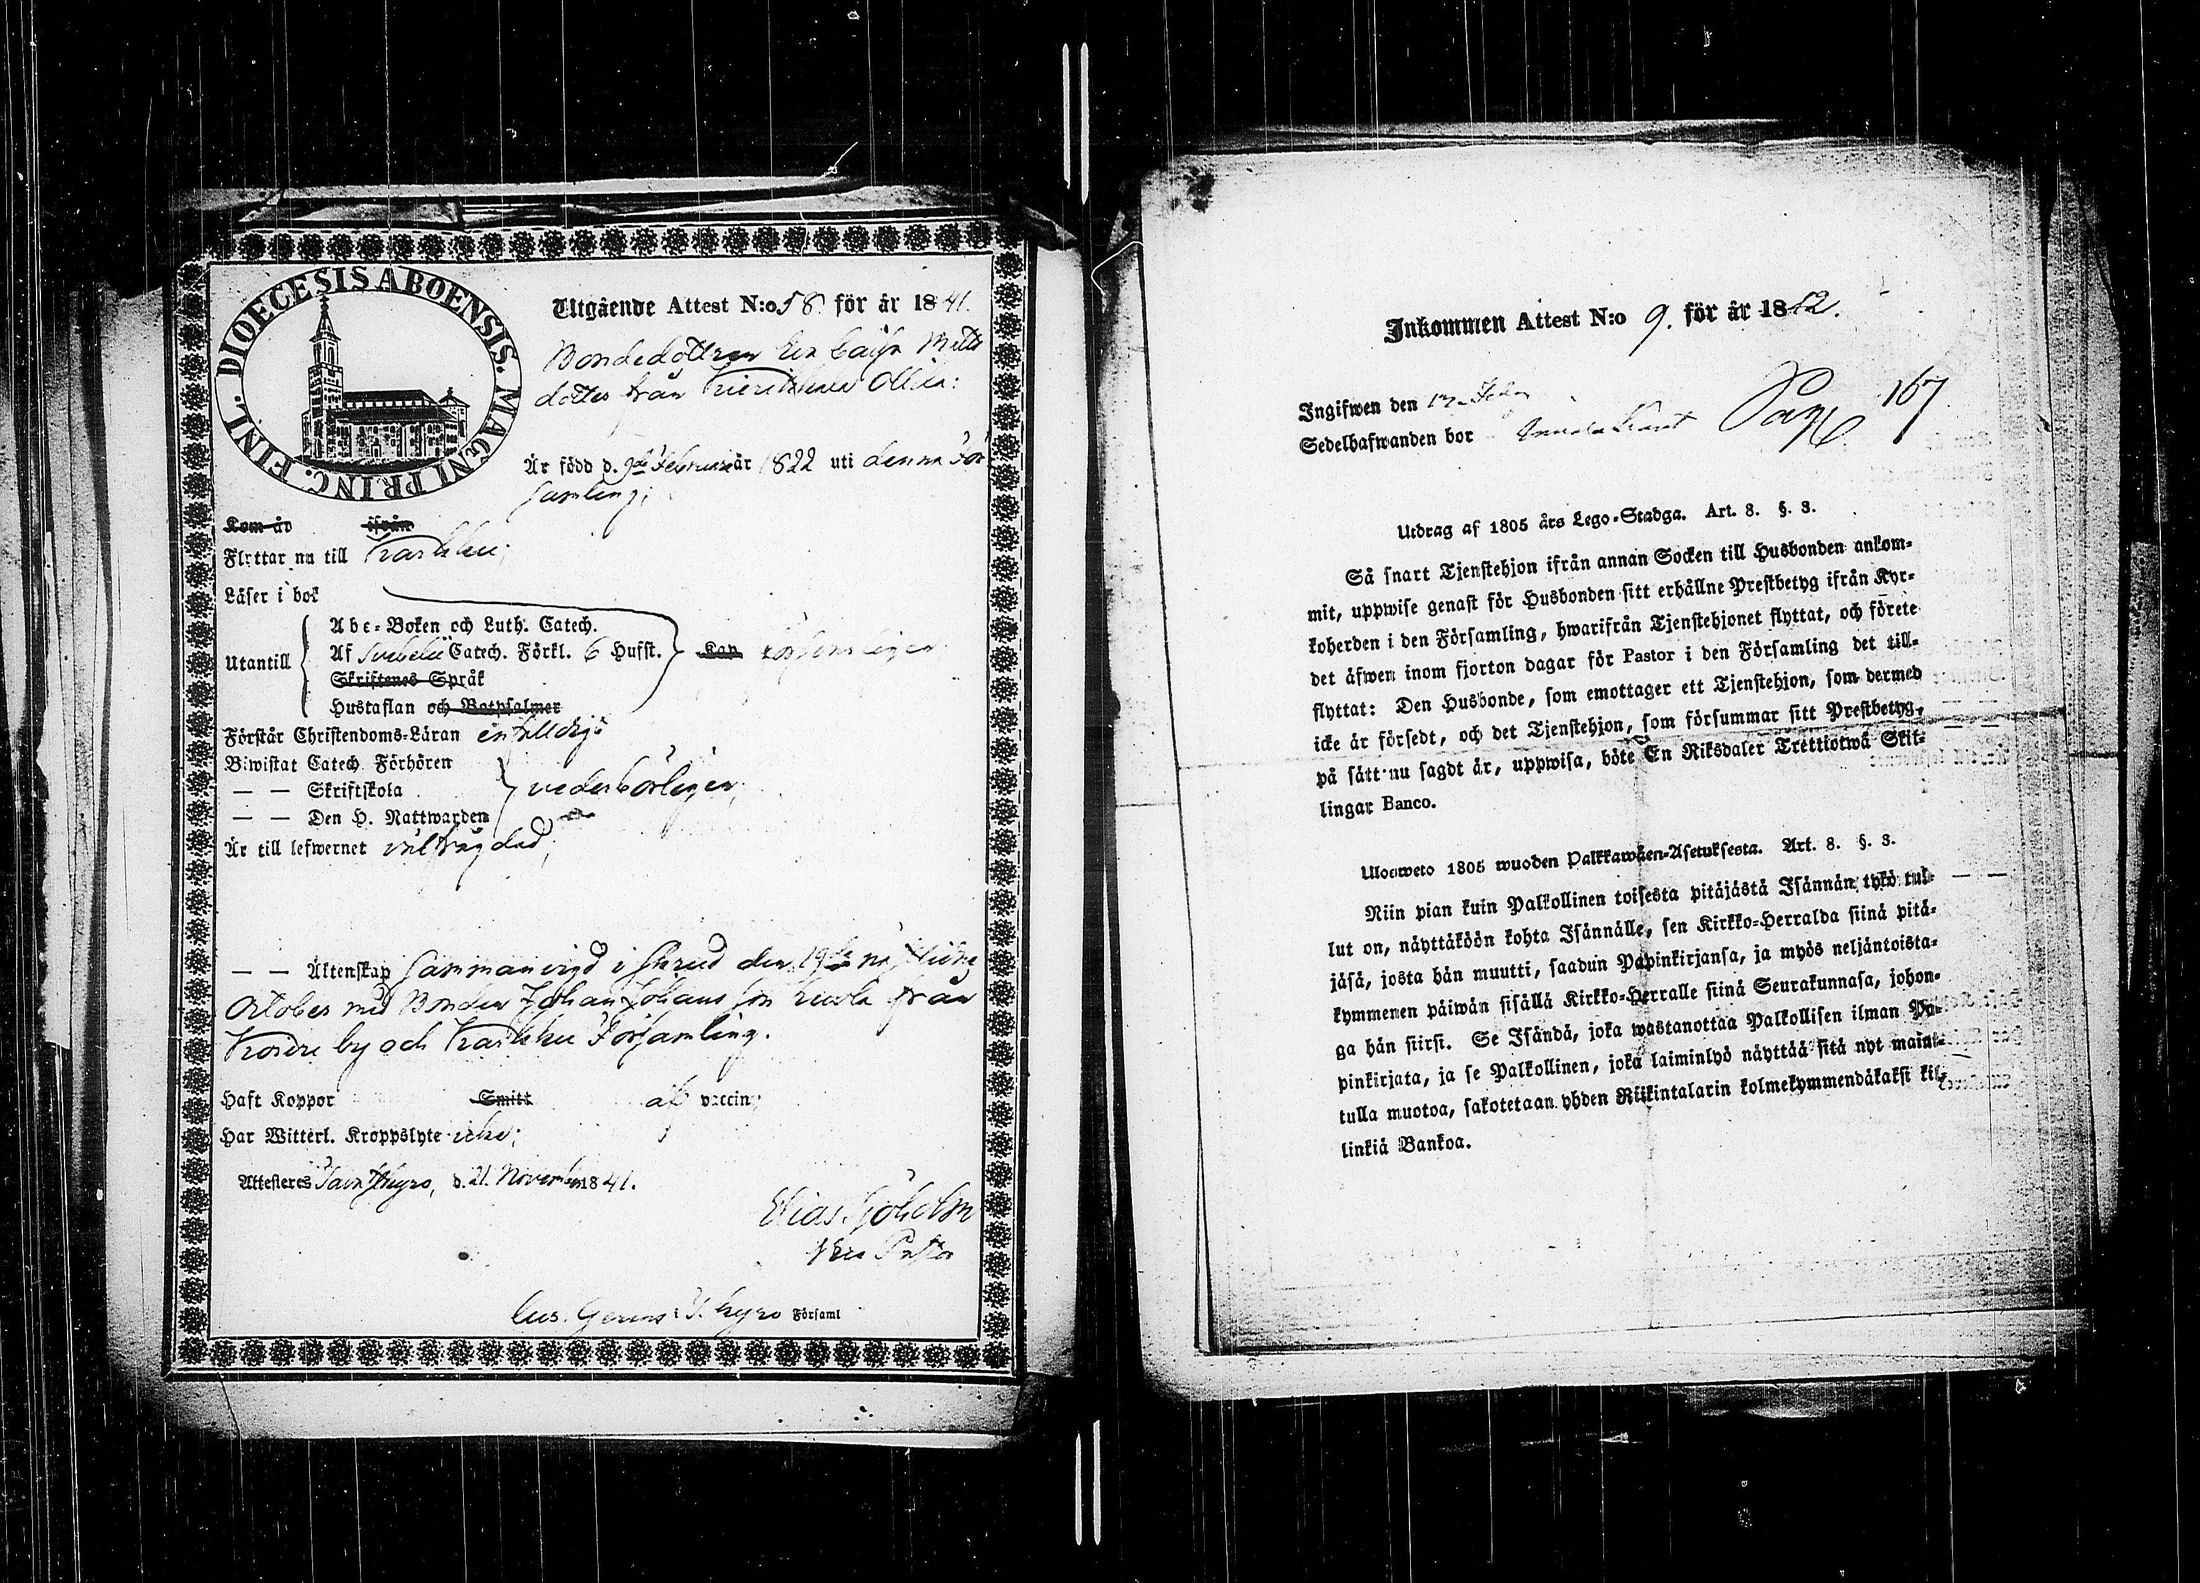 DIOECESIS ABOENSIS. MAGNI PRINC. FINL.
Utgående Attest N:o 58 för år 1841.
Bondedottren
dotter från
Är född d. 9de Februari år 1822 uti denna För-
samling;
Kom år ifrån
Flyttar nu till Karkku;
Läser i bok
Abc-Boken och Luth. Catech.
Utantill Af Svebelii Catech. Förkl. 6 Hufst. Kan
Skriftenes Språk
Hustaflan och Botpsalmer
Förstår Christendoms-Läran enfalldigt
Biwistat Catech Förhören
— — Skriftskola vederbörligen,
— — Den H. Nattwarden
Är till lefwernet välfrägdad;
— — Äktenskap Sammanvigd i den 19de
October med Bonden Johan Johansson från
by och Karkku Församling.
Haft Koppor Smitt af vaccin;
Har Witterl. Kroppslyte icke;
Attesteras Tavastkyro, d. 21. November 1841.
Elias Sjöholm
Vice Pastor
i T. kyro Församl
Inkommen Attest N:o 9. för år 1842.
Ingifwen den
Sedelhafwanden bor Pag 167
Utdrag af 1805 års Lego-Stadga. Art. 8. §. 3.
Så snart Tjenstehjon ifrån annan Socken till Husbonden ankom-
mit, uppwise genast för Husbonden sitt erhållne Prestbetyg ifrån Kyr-
koherden i den Församling, hwarifrån Tjenstehjonet flyttat, och förete
det äfwen inom fjorton dagar för Pastor i den Församling det till-
flyttat: Den Husbonde, som emottager ett Tjenstehjon, som dermed
icke är försedt, och det Tjenstehjon, som försummar sitt Prestbetyg,
på sätt nu sagdt är, uppwisa, böte En Riksdaler Trettiotwå Skil-
lingar Banco.
Ulosweto 1805 wuoden Palkkawäen-Asetuksesta. Art. 8. §. 3.
Niin pian kuin Palkollinen toisesta pitäjästä Isännän tykö tul-
lut on, näyttäköön kohta Isännälle, sen Kirkko-Herralda siinä pitä-
jäsä, josta hän muutti, saadun Papinkirjansa, ja myös neljäntoista-
kymmenen päiwän sisällä Kirkko-Herralle siinä Seurakunnasa, johon-
ga hän siirsi. Se Isändä, joka wastanottaa Palkollisen ilman Pa-
pinkirjata, ja se Palkollinen, joka laiminlyö näyttää sitä nyt maini-
tulla muotoa, sakotetaan yhden Riikintalarin kolmekymmendäkaksi kil-
linkiä Bankoa.